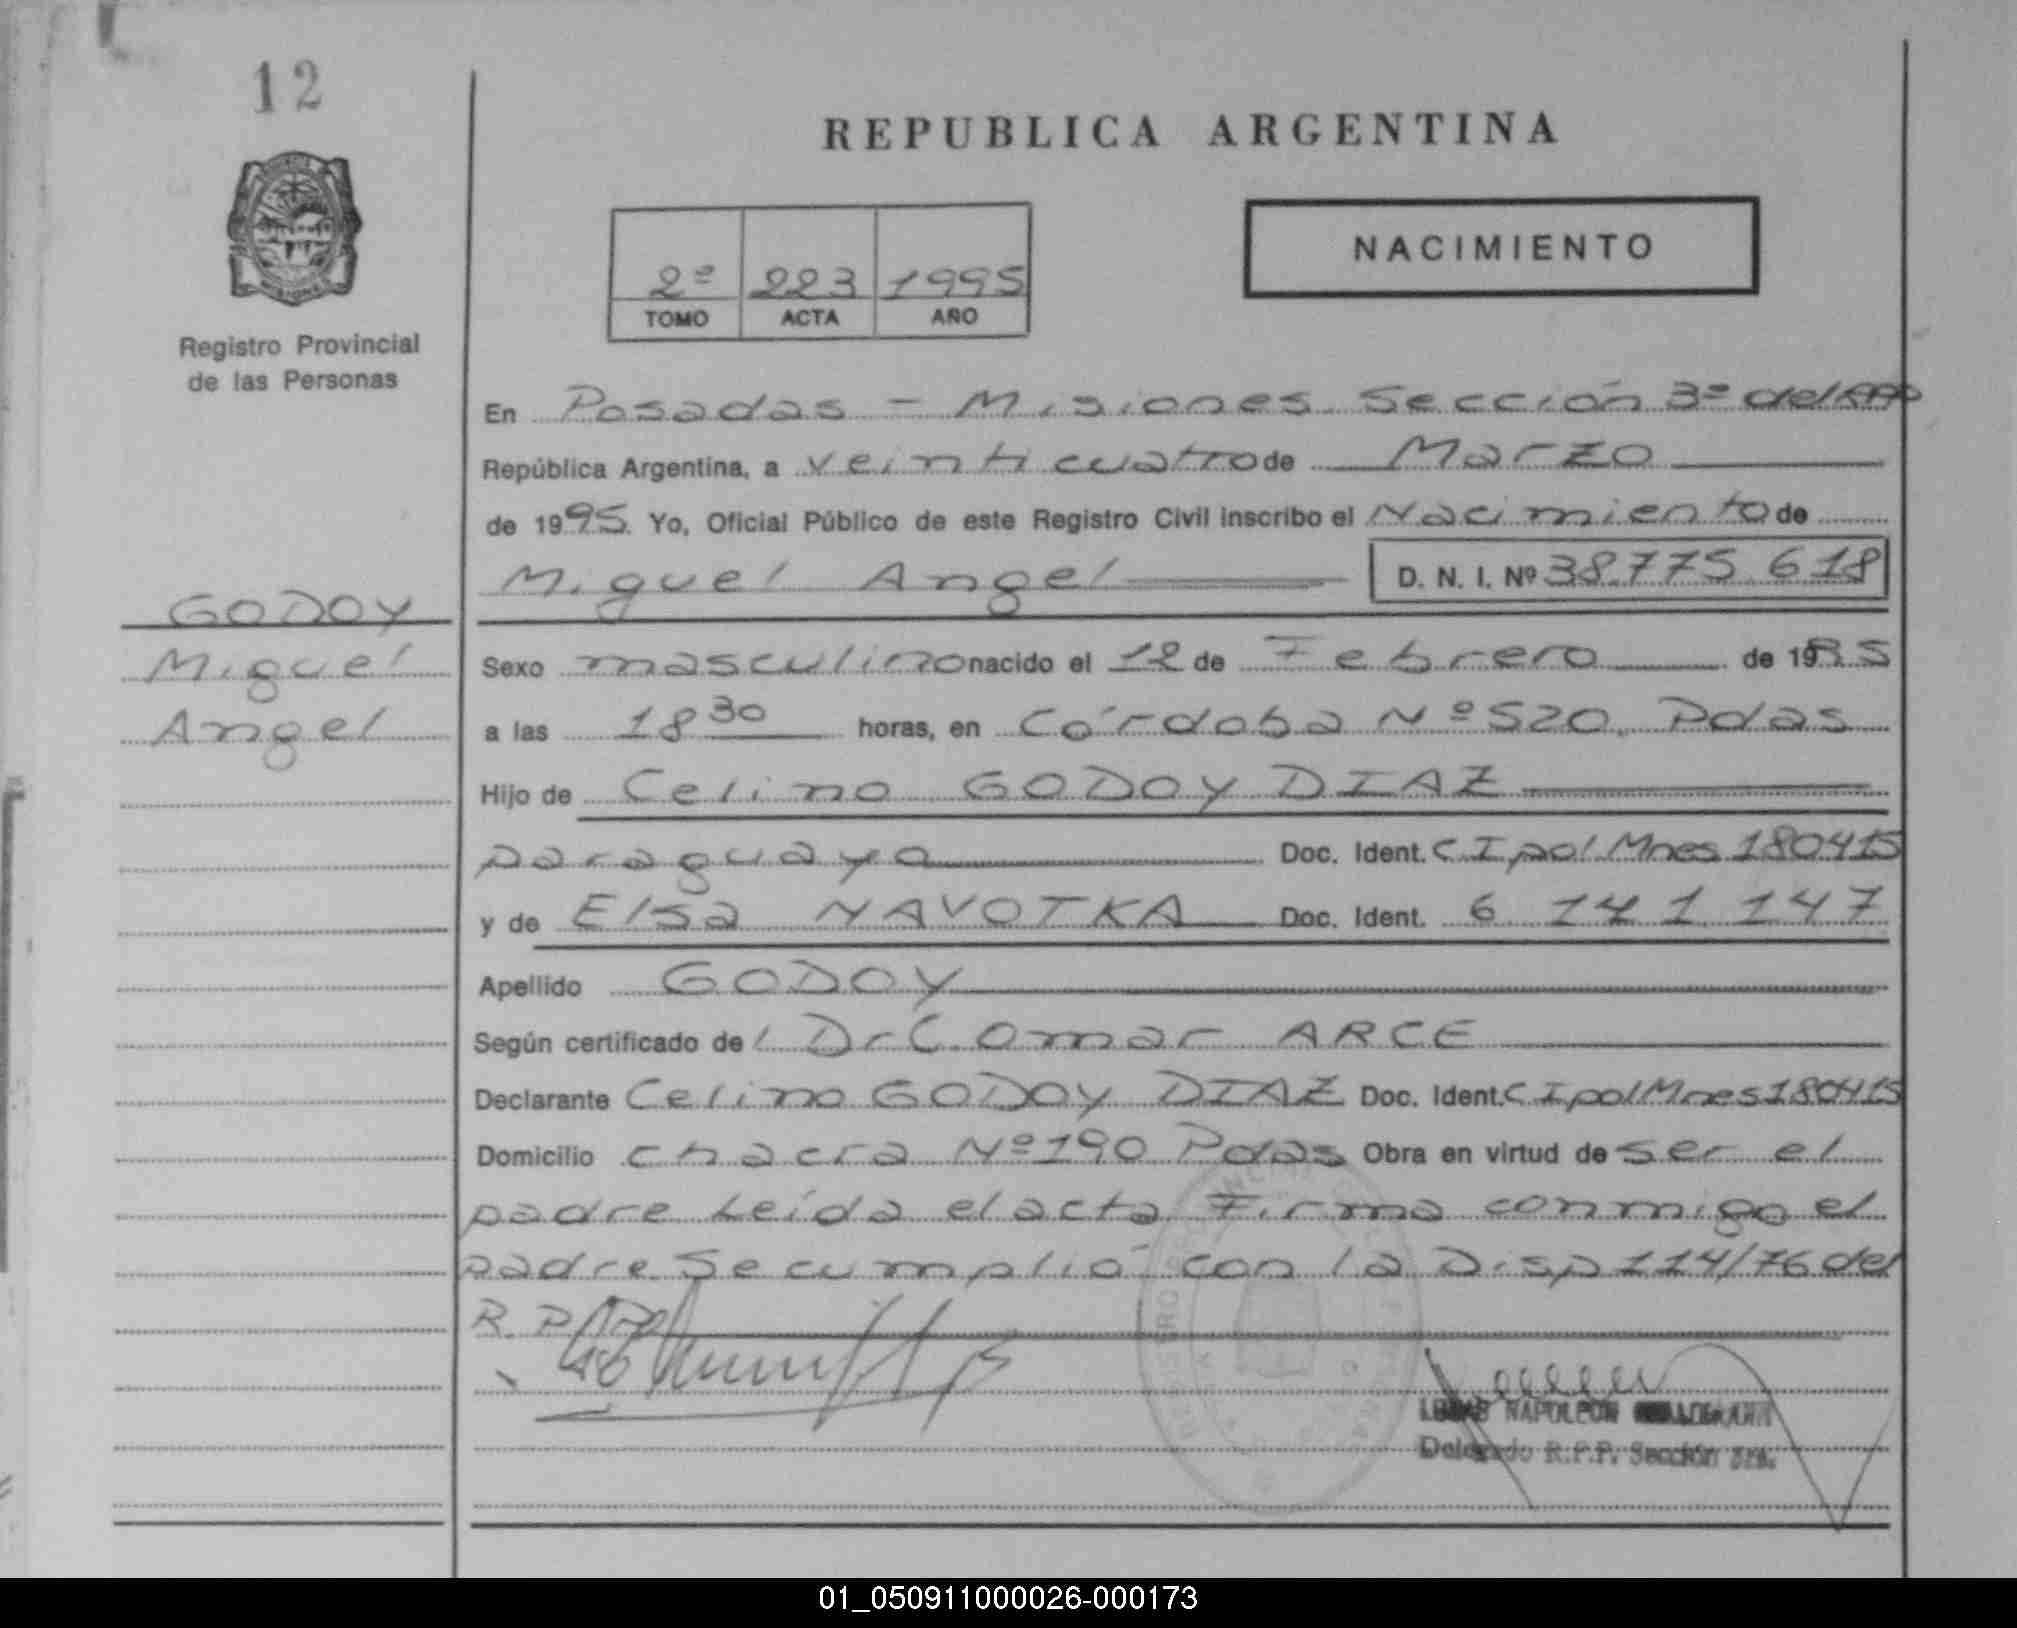 12
REPUBLICA ARGENTINA
NACIMIENTO
2º 223 1995
TOMO ACTA AÑO
Registro Provincial
de las Personas
En Posadas - Misiones. Sección 3º del RPP
República Argentina, a veinticuatro de Marzo
de 1995. Yo, Oficial Público de este Registro Civil inscribo el Nacimiento de
Miguel Angel D. N. I. Nº 38.775.618
GODOY
Miguel
Angel
Sexo masculino nacido el 12 de Febrero de 1995
a las 18 30 horas, en Córdoba Nº 520. Pdas
Hijo de Celino GODOY DIAZ
paraguaya Doc. Ident. C I pol Mnes 180415
y de Elsa NAVOTKA Doc. Ident. 6 141 147
Apellido GODOY
Según certificado del Dr C. Omar ARCE
Declarante Celino GODOY DIAZ Doc. Ident. C I pol Mnes 180415
Domicilio chacra Nº 190 Pdas Obra en virtud de ser el
padre Leída el acta Firma conmigo el
padre Se cumplió con la Disp 114/76 del
R. P. P.
NAPOLEON
Delegado R.P.P. Sección 3ra.
01_050911000026-000173